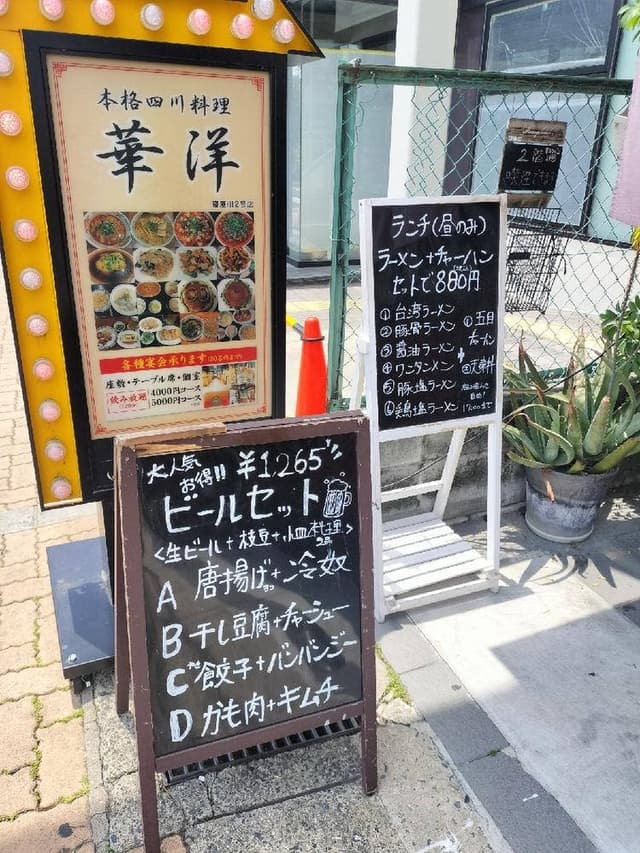 本格四川料理
華洋
寝屋川2号店
各種宴会承ります
座敷・テーブル席・個室
飲み放題
4000円コース
5000円コース
大人気
お得!! ¥1,265
ビールセット
<生ビール+枝豆+小皿料理>
A 唐揚げ+冷奴
B 干し豆腐+チャーシュー
C 餃子+バンバンジー
D かも肉+キムチ
ランチ(昼のみ)
ラーメン+チャーハン
セットで880円
① 台湾ラーメン
② 豚骨ラーメン
③ 醤油ラーメン
④ ワンタンメン
⑤ 豚塩ラーメン
⑥ 鶏塩ラーメン
+
① 五目
チャーハン
② 天津丼
2階